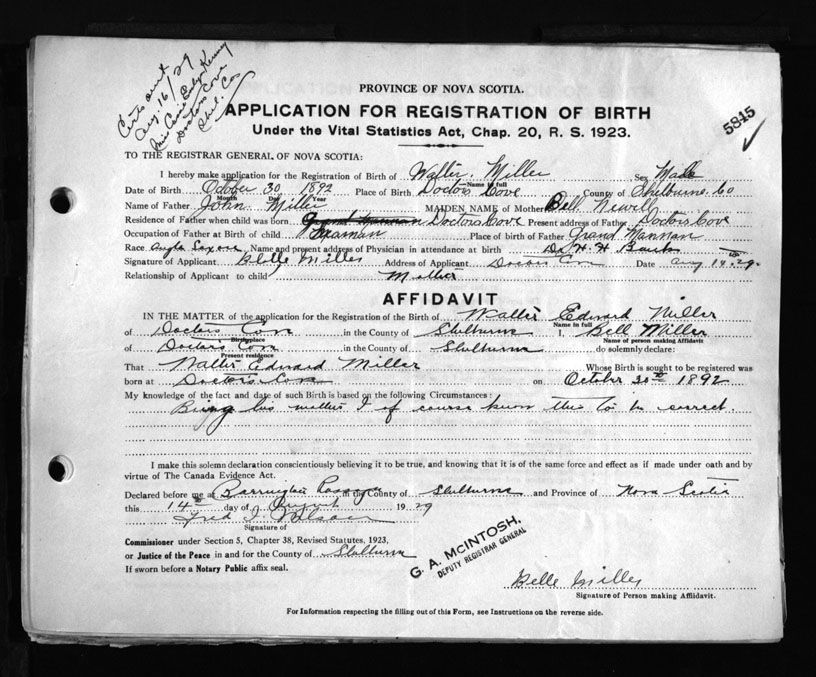 Certs sent
Aug 16/29
Doctors Cove
Shel. Co
PROVINCE OF NOVA SCOTIA.
APPLICATION FOR REGISTRATION OF BIRTH
5845
Under the Vital Statistics Act, Chap. 20, R. S. 1923.
TO THE REGISTRAR GENERAL OF NOVA SCOTIA:
I hereby make application for the Registration of Birth of Walter. Miller Sex Male
Name in full
Date of Birth October 30 1892 Place of Birth Doctors Cove County of Shelburne Co
Month Day Year
Name of Father John Miller MAIDEN NAME of Mother Bell Newell
Residence of Father when child was born Grand Mannan Doctors Cove Present address of Father Doctors Cove
Occupation of Father at Birth of child Seaman Place of birth of Father Grand Mannan
Race Anglo Saxon Name and present address of Physician in attendance at birth Dr H. H Banks
Signature of Applicant Belle Miller Address of Applicant Doctors Cove Date Aug 14th 29
Relationship of Applicant to child Mother
AFFIDAVIT
IN THE MATTER of the application for the Registration of the Birth of Walter Edward Miller
Name in full
of Doctors Cove in the County of Shelburne I, Bell Miller
Birthplace Name of person making Affidavit
of Doctors Cove in the County of Shelburne do solemnly declare:
Present residence
That Walter Edward Miller Whose Birth is sought to be registered was
born at Doctors Cove on October 30th 1892
My knowledge of the fact and date of such Birth is based on the following Circumstances:
Being his mother I of course know this to be correct.
I make this solemn declaration conscientiously believing it to be true, and knowing that it is of the same force and effect as if made under oath and by
virtue of The Canada Evidence Act.
Declared before me at Barrington Passage in the County of Shelburne and Province of Nova Scotia
this 14th day of August 1929
Fred I. Nelson
Signature of
Commissioner under Section 5, Chapter 38, Revised Statutes, 1923,
or Justice of the Peace in and for the County of Shelburne
If sworn before a Notary Public affix seal.
G. A. McINTOSH,
DEPUTY REGISTRAR GENERAL
Belle Miller
Signature of Person making Affidavit.
For Information respecting the filling out of this Form, see Instructions on the reverse side.